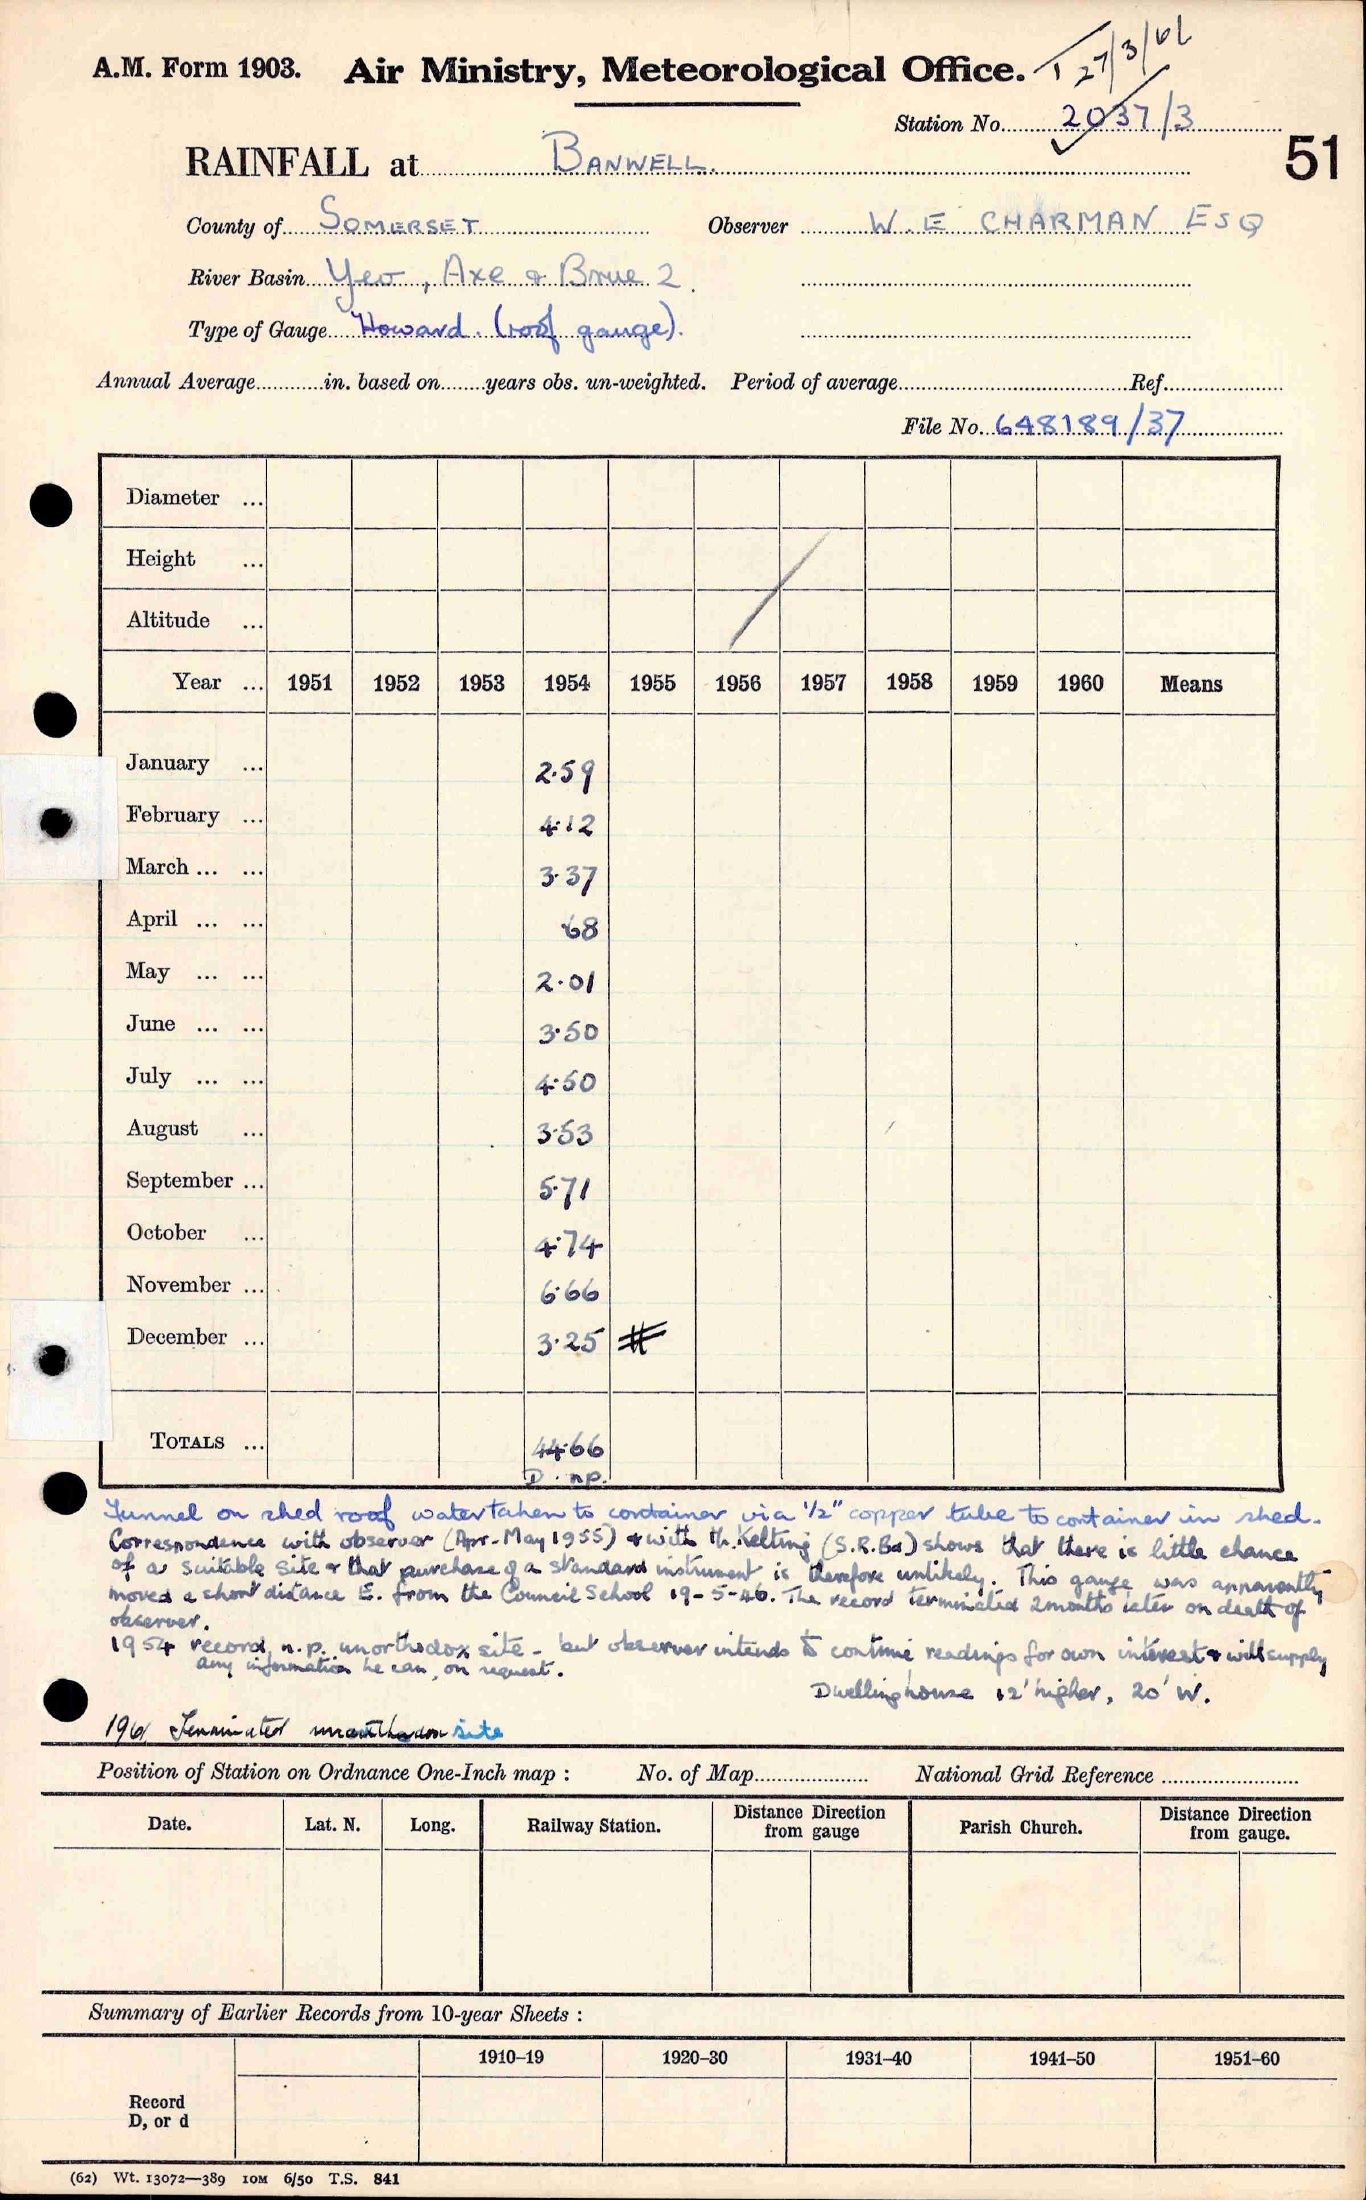 A.M. Form 1903. Air Ministry, Meteorological Office.
27/3/61
Station No. 2037/3
RAINFALL at BANWELL.
51
County of SOMERSET Observer W. E CHARMAN ESQ
River Basin Yeo, Axe & Brue 2.
Type of Gauge Howard. (roof gauge).
Annual Average in. based on years obs. un-weighted. Period of average Ref.
File No. 648189/37
Diameter ...
Height ...
Altitude ...
Year ... 1951 1952 1953 1954 1955 1956 1957 1958 1959 1960 Means
January ... 2.59
February ... 4.12
March ... ... 3.37
April ... ... .68
May ... ... 2.01
June ... ... 3.50
July ... ... 4.50
August ... 3.53
September ... 5.71
October ... 4.74
November ... 6.66
December ... 3.25 #
TOTALS ... 44.66
D. n.p.
Funnel on shed roof water taken to container via 1/2" copper tube to container in shed.
Correspondence with observer (Apr-May 1955) & with Mr. Kelting (S.R.Bd) shows that there is little chance
of a suitable site & that purchase of a standard instrument is therefore unlikely. This gauge was apparently
moved a short distance E. from the Council School 19-5-46. The record terminated 2 months later on death of
observer.
1954 record n.p. unorthodox site - but observer intends to continue readings for own interest & will supply
any information he can, on request.
Dwelling house 12' higher, 20' W.
1961 Terminated unorthodox site
Position of Station on Ordnance One-Inch map : No. of Map National Grid Reference
Date. Lat. N. Long. Railway Station. Distance Direction from gauge Parish Church. Distance Direction from gauge.
Summary of Earlier Records from 10-year Sheets :
1910–19 1920–30 1931–40 1941–50 1951–60
Record
D, or d
(62) Wt. 13072—389 10M 6/50 T.S. 841